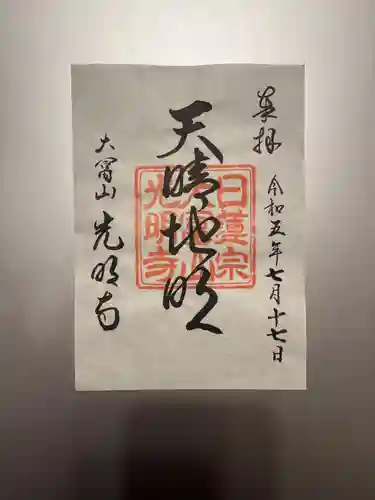 奉拝
令和五年七月十七日
天晴地明
日蓮宗
光明寺
大富山
光明寺